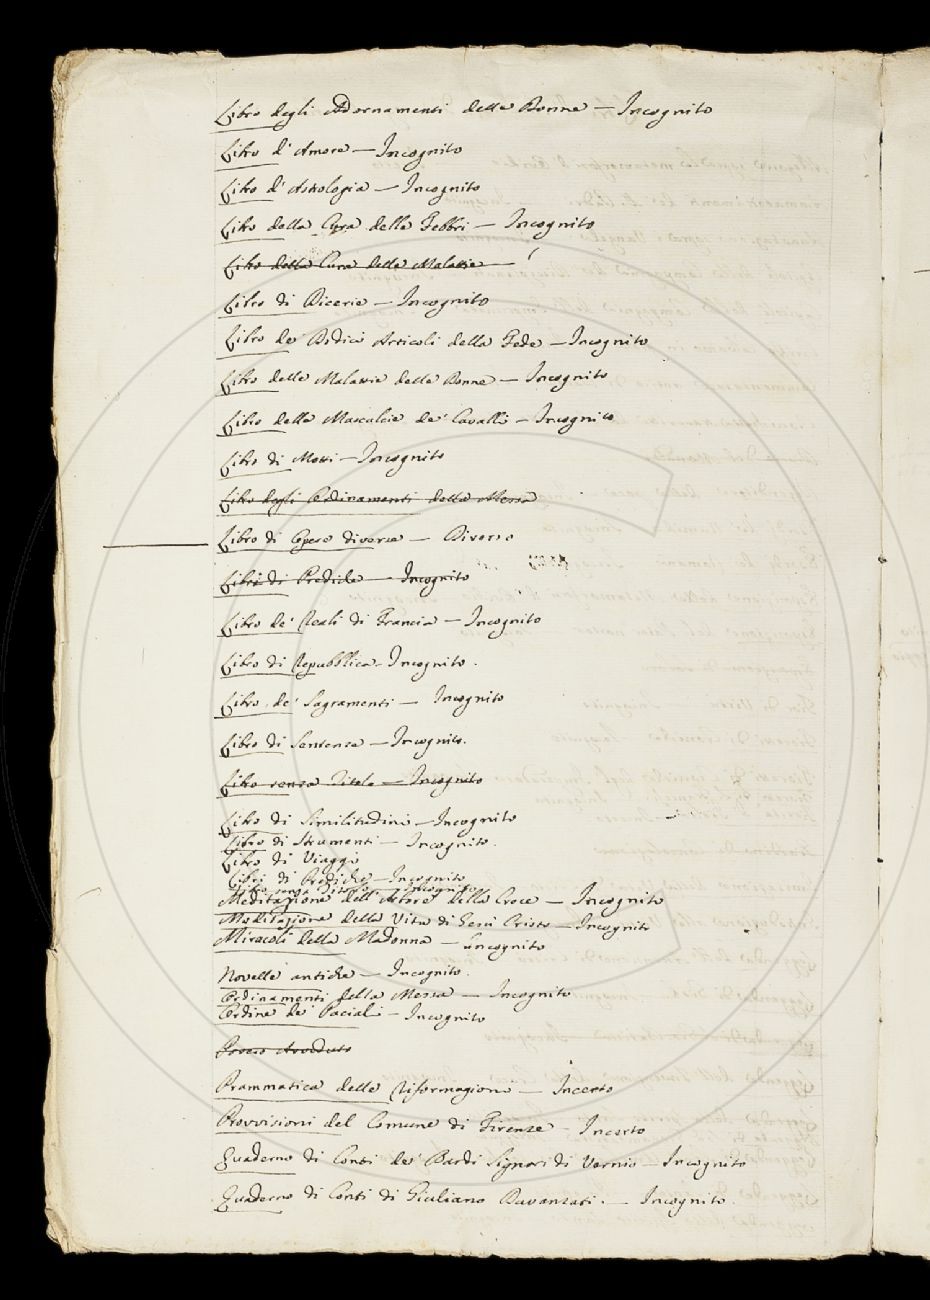 Libro degli Adornamenti delle Donne — Incognito
Libro d'Amore — Incognito
Libro d'Astrologia — Incognito
Libro della Cura delle Febbri — Incognito
Libro della Cura delle Malattie —
Libro di Dicerie — Incognito
Libro de' Dodici Articoli della Fede — Incognito
Libro delle Malattie delle Donne — Incognito
Libro delle Mascalcie de' Cavalli — Incognito
Libro di Motti — Incognito
Libro degli Ordinamenti della Messa
Libro di Opere diverse — Diverso
Libri di Prediche — Incognito
Libro de' Reali di Francia — Incognito
Libro di Repubblica — Incognito.
Libro de' Sagramenti — Incognito
Libro di Sentenze — Incognito.
Libro senza Titolo — Incognito
Libro di Similitudini — Incognito
Libro di Strumenti — Incognito.
Libro di Viaggi
Libri di Prediche — Incognito
Libro senza Titolo — Incognito
Meditazione dell'Albore della Croce — Incognito
Meditazione della Vita di Gesù Cristo — Incognito
Miracoli della Madonna — Incognito
Novelle antiche — Incognito.
Ordinamenti della Messa — Incognito
Ordine de' Paciali — Incognito
Prammatica delle Riformagioni — Incerto
Provvisioni del Comune di Firenze — Incerto
Quaderno di Conti de' Bardi Signori di Vernio — Incognito
Quaderno di Conti di Giuliano Davanzati. — Incognito.